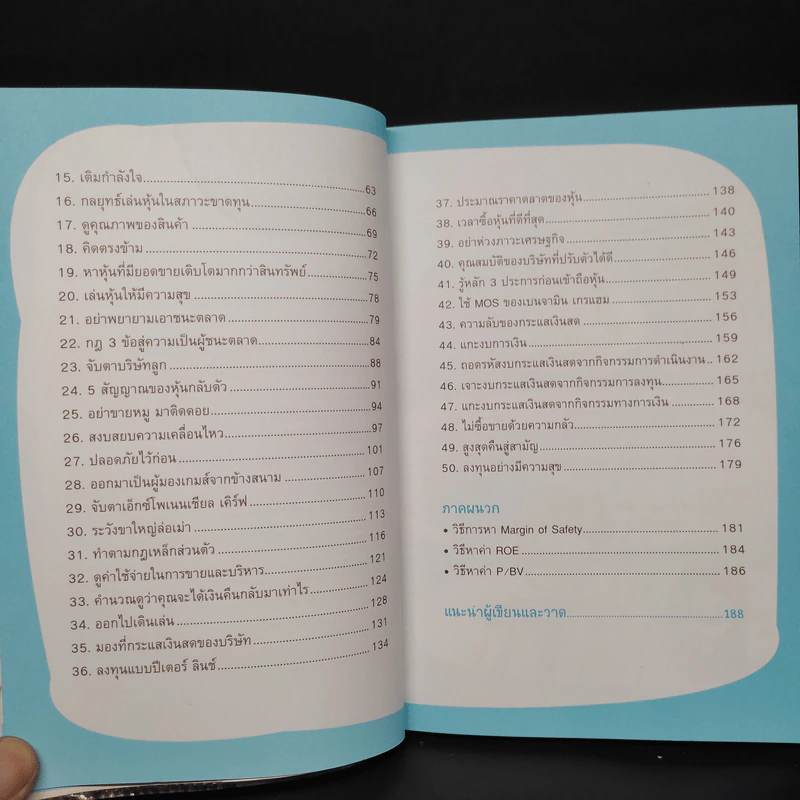 15. เติมกำลังใจ 63
16. กลยุทธ์เล่นหุ้นในสภาวะขาดทุน 66
17. ดูคุณภาพของสินค้า 69
18. คิดตรงข้าม 72
19. หาหุ้นที่มียอดขายเติบโตมากกว่าสินทรัพย์ 75
20. เล่นหุ้นให้มีความสุข 78
21. อย่าพยายามเอาชนะตลาด 79
22. กฎ 3 ข้อสู่ความเป็นผู้ชนะตลาด 84
23. จับตาบริษัทลูก 88
24. 5 สัญญาณของหุ้นกลับตัว 91
25. อย่าขายหมู มาติดดอย 94
26. สงบสยบความเคลื่อนไหว 97
27. ปลอดภัยไว้ก่อน 101
28. ออกมาเป็นผู้มองเกมส์จากข้างสนาม 107
29. จับตาเอ็กซ์โพเนนเชียล เคิร์ฟ 110
30. ระวังขาใหญ่ล่อเม่า 113
31. ทำตามกฎเหล็กส่วนตัว 116
32. ดูค่าใช้จ่ายในการขายและบริหาร 121
33. คำนวณดูว่าคุณจะได้เงินคืนกลับมาเท่าไร 124
34. ออกไปเดินเล่น 128
35. มองที่กระแสเงินสดของบริษัท 131
36. ลงทุนแบบปีเตอร์ ลินซ์ 134
37. ประมาณราคาตลาดของหุ้น 138
38. เวลาซื้อหุ้นที่ดีที่สุด 140
39. อย่าห่วงภาวะเศรษฐกิจ 143
40. คุณสมบัติของบริษัทที่ปรับตัวได้ดี 146
41. รู้หลัก 3 ประการก่อนเข้าถือหุ้น 149
42. ใช้ MOS ของเบนจามิน เกรแฮม 153
43. ความลับของกระแสเงินสด 156
44. แกะงบการเงิน 159
45. ถอดรหัสงบกระแสเงินสดจากกิจกรรมการดำเนินงาน 162
46. เจาะงบกระแสเงินสดจากกิจกรรมการลงทุน 165
47. แกะงบกระแสเงินสดจากกิจกรรมทางการเงิน 168
48. ไม่ซื้อขายด้วยความกลัว 172
49. สูงสุดคืนสู่สามัญ 176
50. ลงทุนอย่างมีความสุข 179
ภาคผนวก
• วิธีการหา Margin of Safety 181
• วิธีหาค่า ROE 184
• วิธีหาค่า P/BV 186
แนะนำผู้เขียนและวาด 188